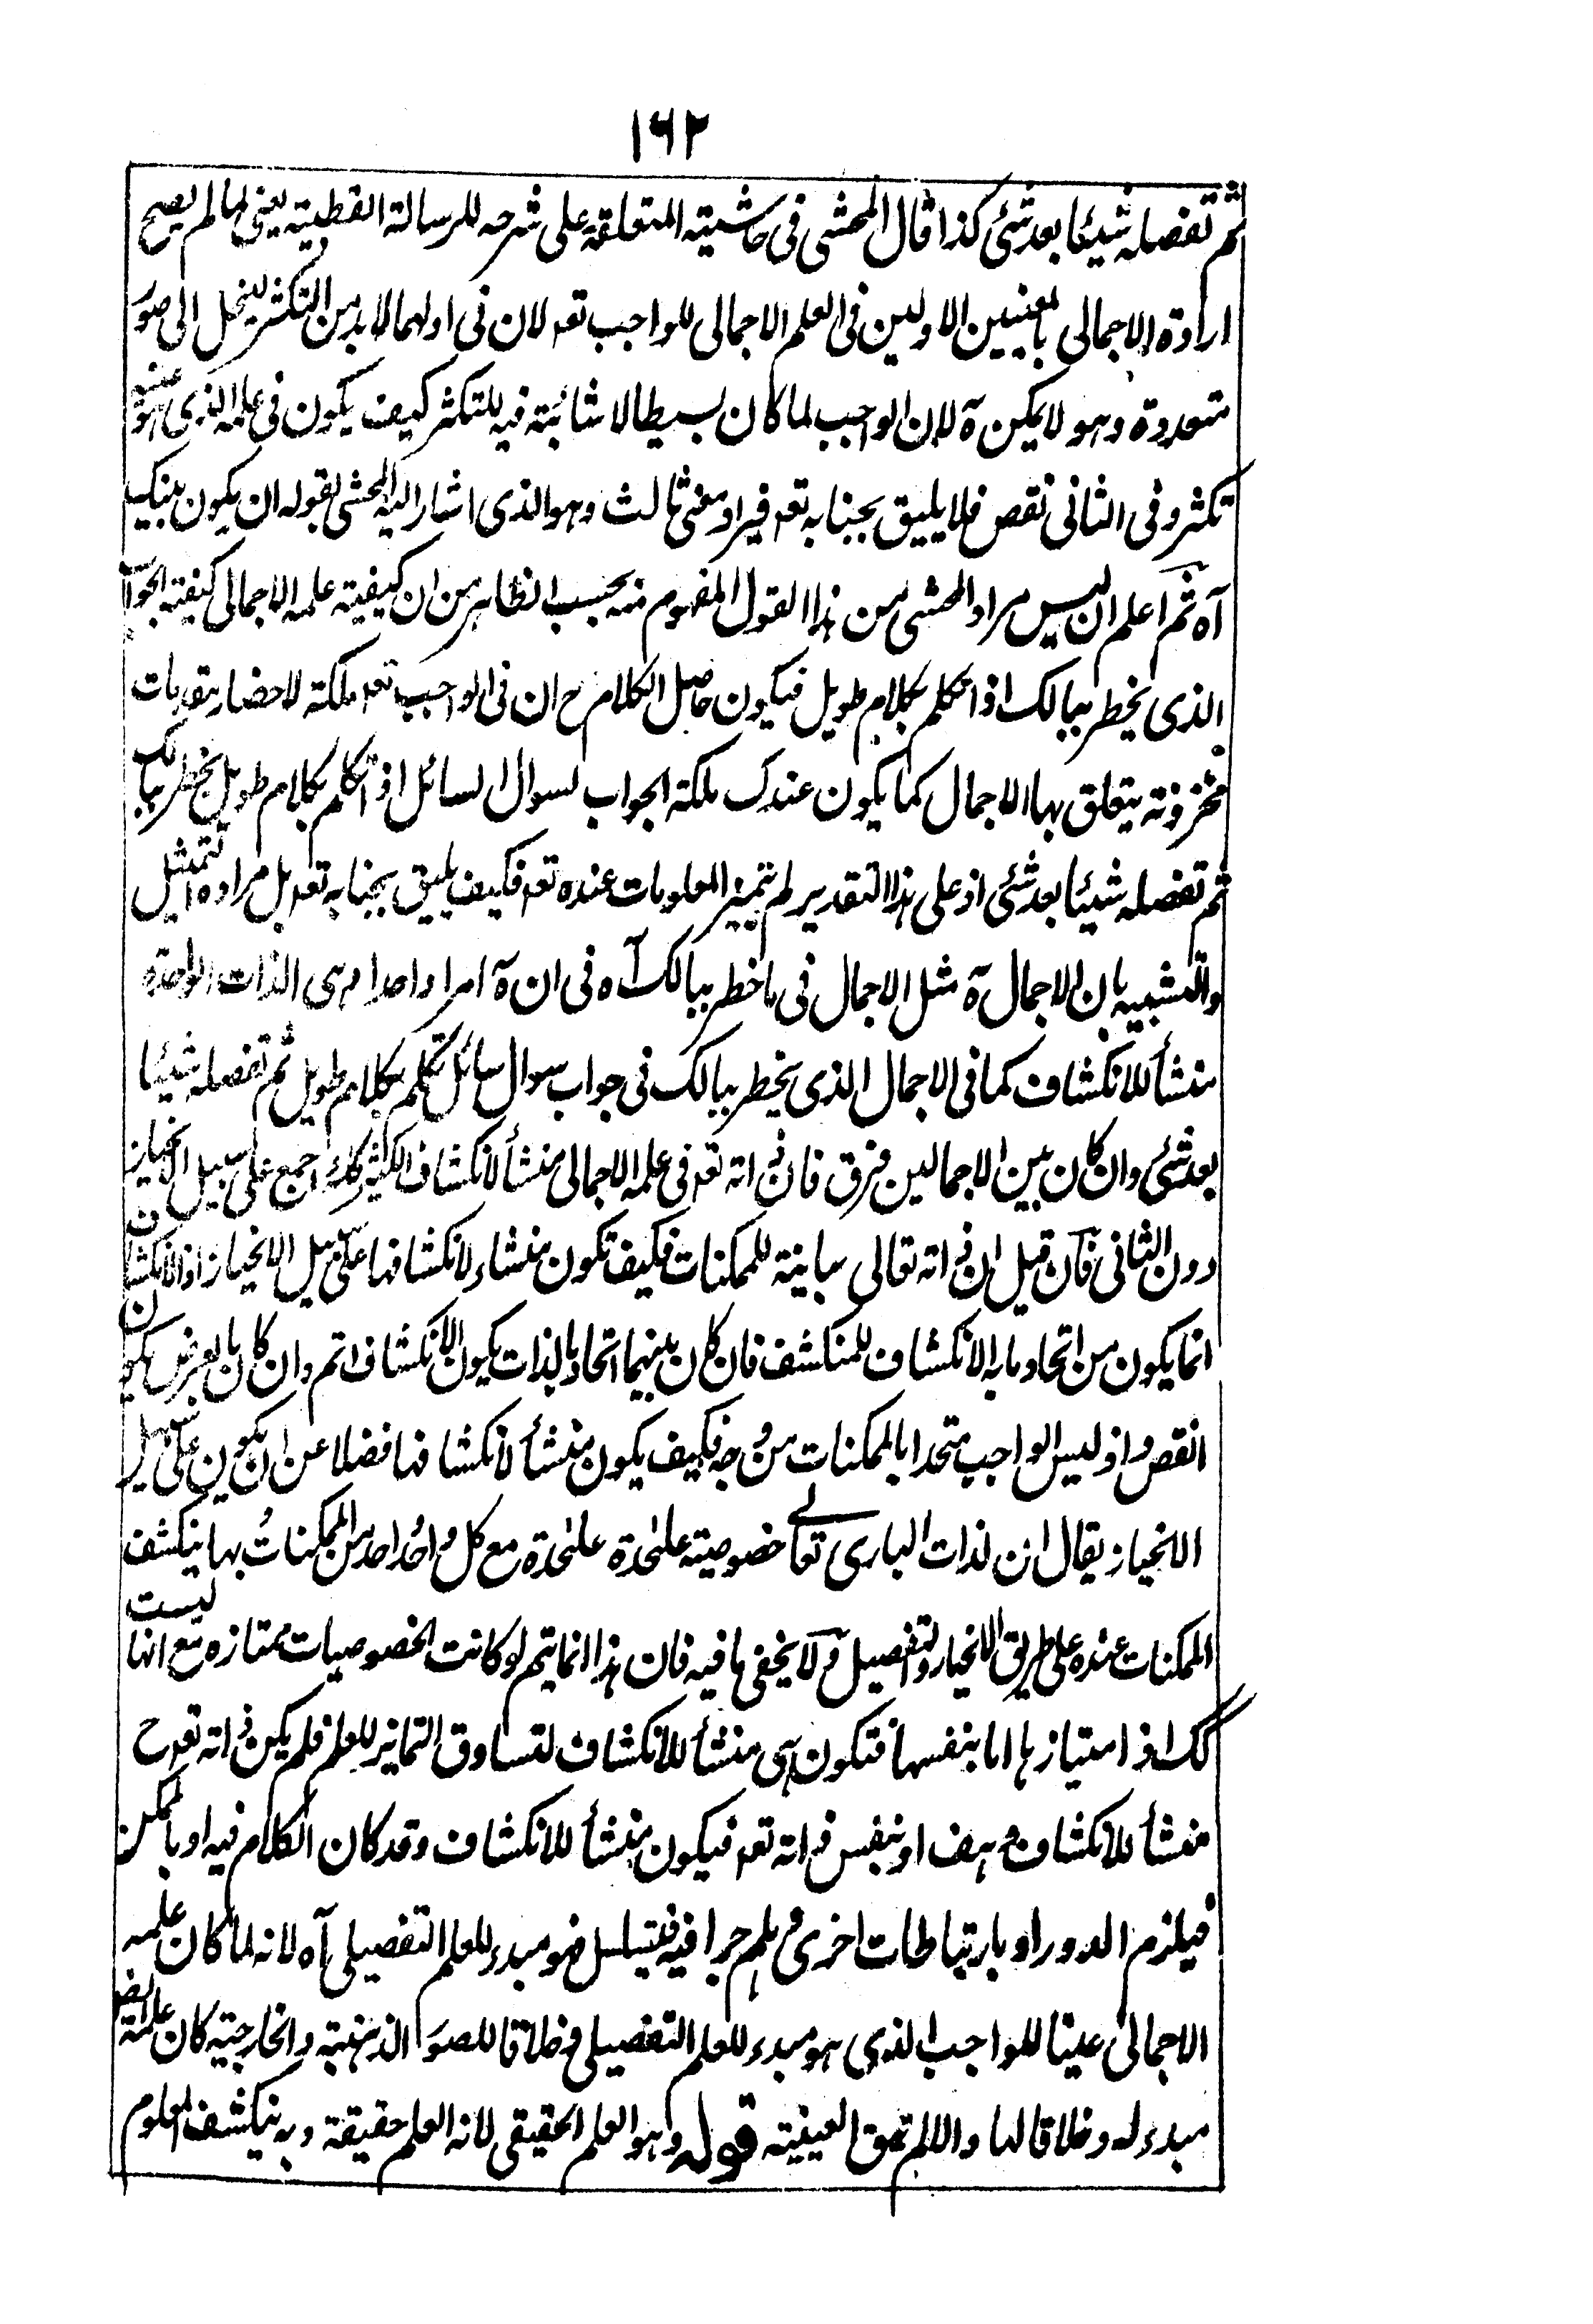 ۱۶۲
ثم تفصله شيئا بعد شئ كذا قال المحشى فى حاشيته المتعلقة على شرحه للرسالة القطبية يعنى لما لم يصح
ارادة الاجمالى بالمعنيين الاولين فى العلم الاجمالى للواجب تعه لان فى اولهما لابد من التكثر لينحل الى صور
متعددة وهو لا يمكن ة لان الواجب لما كان بسيطا لا شائبة فيه للتكثر كيف يكون فى علمه الذى هو عينه
تكثر وفى الثانى نقص فلا يليق بجنابه تعه فيراد معنى ثالث وهو الذى اشار اليه المحشى بقوله ان يكون بينك
آه ثم اعلم ان ليس مراد المحشى من هذا القول المفهوم منه بحسب الظاهر من ان كيفية علمه الاجمالى كيفية الجواب
الذى يخطر ببالك اذا تكلم بكلام طويل فيكون حاصل الكلام ح ان فى الواجب تعه ملكة لاحضار مقدمات
مخزونة يتعلق بها الاجمال كما يكون عندك ملكة الجواب لسوال السائل اذا تكلم بكلام طويل يخطر ببالك
ثم تفصله شيئا بعد شئ اذ على هذا التقدير لم يتميز المعلومات عنده تعه فكيف يليق بجنابه تعه بل مراده التمثيل
والتشبيه بان الاجمال ة مثل الاجمال فى ما خطر ببالك آه فى ان ة امرا واحدا م هى الذات الواحدة
منشأ للانكشاف كما فى الاجمال الذى يخطر ببالك فى جواب سوال سائل تكلم بكلام طويل ثم تفصله شيئا
بعد شئ وان كان بين الاجمالين فرق فان ذاته تعه فى علمه الاجمالى منشأ لانكشاف الكثير كله اجمع على سبيل الانحياز
دون الثانى فان قيل ان ذاته تعالى مباينة للممكنات فكيف تكون منشاء لانكشافها على سبيل الانحياز اذ الانكشاف
انما يكون من اتحاد ما به الانكشاف للمنكشف فان كان بينهما اتحاد بالذات يكون الانكشاف اتم وان كان بالعرض يكون
انقص واذ ليس الواجب متحدا بالممكنات من وجه فكيف يكون منشأ لانكشافها فضلا عن ان يكون على سبيل
الانحياز يقال ان لذات البارى تعالے خصوصية علٰحدة علٰحدة مع كل واحد واحد من الممكنات بها ينكشف
الممكنات عنده على طريق الانحياز والتفصيل و لا يخفى ما فيه فان هذا انما يتم لو كانت الخصوصيات ممتازه مع انها ليست
كك اذ امتيازها اما بنفسها فتكون هى منشأ للانكشاف لتساوق التمايز للعلم فلم يكن ذاته تعه ح
منشأ للانكشاف و هف او بنفس ذاته تعه فيكون منشأ للانكشاف وقد كان الكلام فيه او بالممكن
فيلزم الدور او بارتباطات اخرى و هلم جرا فيه فيتسلسل فهو مبدء للعلم التفصيلى آه لانه لما كان علمه
الاجمالى عينا للواجب الذى هو مبدء للعلم التفصيلى و خلاقا للصور الذهنية والخارجية كان علمه ايض
مبدء له وخلاقا لها والا لم تحق العينية قوله وهو العلم الحقيقى لانه العلم حقيقة وبه ينكشف المعلوم